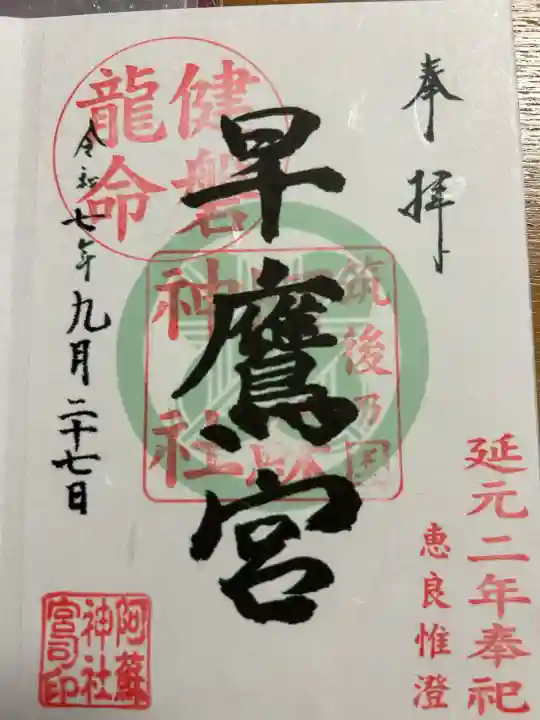 奉拝
早鷹宮
健磐
龍命
筑後乃国
神社
令和七年九月二十七日
延元二年奉祀
恵良惟澄
阿蘇
神社
宮司印